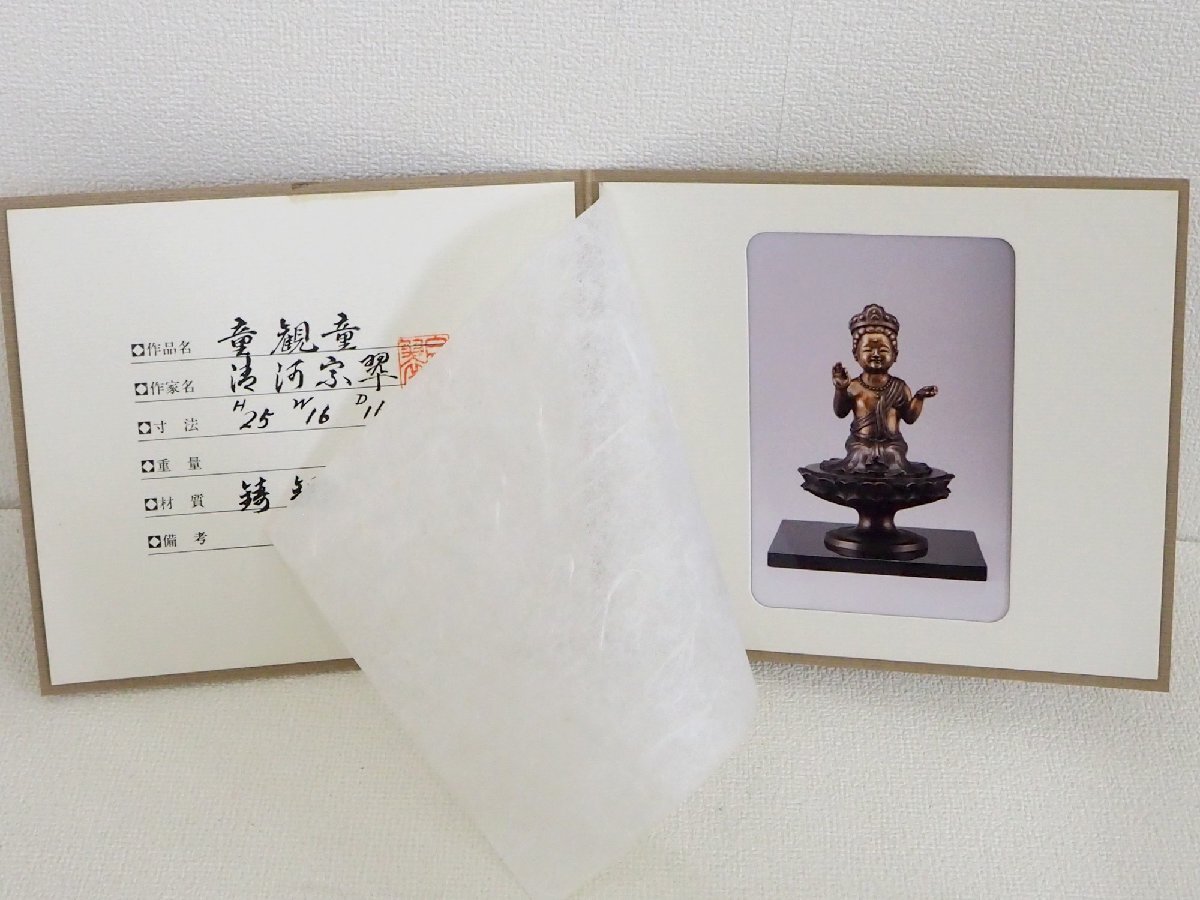 作品名 童観童
作家名 清河宗翠
寸法 H25 W16 D11
重量
材質 鋳
備考